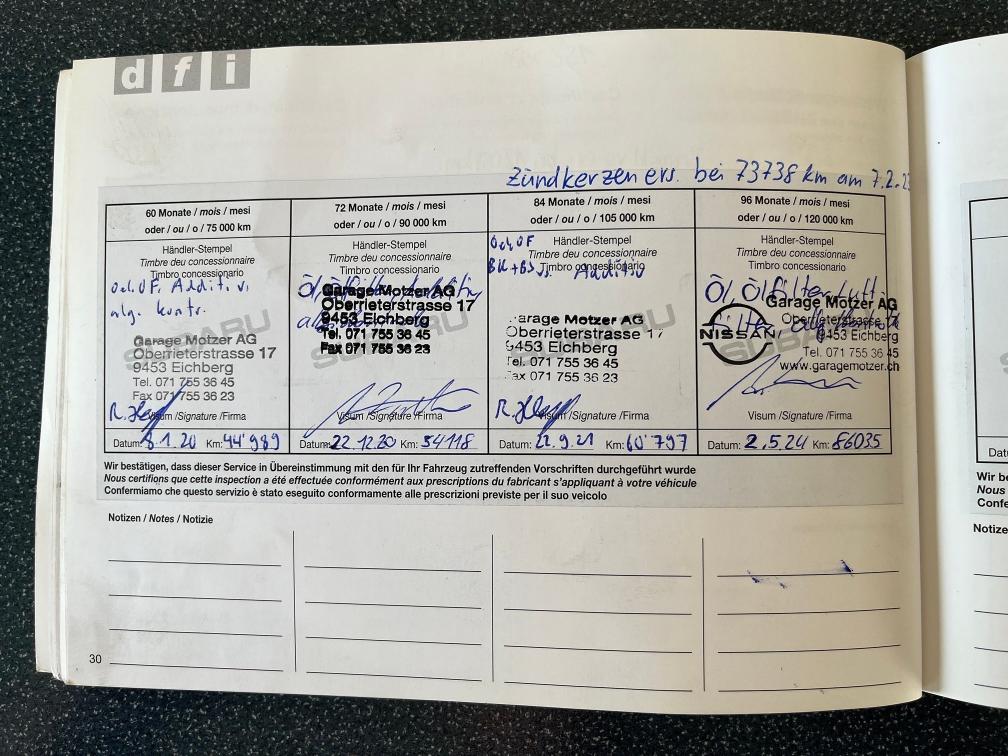 dfi
Zündkerzen ers. bei 73738 km am 7.2.2
60 Monate / mois / mesi
oder / ou / o / 75 000 km
Händler-Stempel
Timbre du concessionnaire
Timbro concessionario
Oel, OF. Additiv,
allg. kontr.
SUBARU
Garage Motzer AG
Oberrieterstrasse 17
9453 Eichberg
Tel. 071 755 36 45
Fax 071 755 36 23
Visum /Signature /Firma
Datum: 8.1.20 Km: 44'989
72 Monate / mois / mesi
oder / ou / o / 90 000 km
Händler-Stempel
Timbre du concessionnaire
Timbro concessionario
Öl, Ölfilter
SUBARU
Garage Motzer AG
Oberrieterstrasse 17
9453 Eichberg
Tel. 071 755 36 45
Fax 071 755 36 23
Visum /Signature /Firma
Datum: 22.12.20 Km: 54118
84 Monate / mois / mesi
oder / ou / o / 105 000 km
Oel, OF
Händler-Stempel
Timbre du concessionnaire
Timbro concessionario
Additiv
SUBARU
Garage Motzer AG
Oberrieterstrasse 17
9453 Eichberg
Tel. 071 755 36 45
Fax 071 755 36 23
Visum /Signature /Firma
Datum: 22.9.21 Km: 60'797
96 Monate / mois / mesi
oder / ou / o / 120 000 km
Händler-Stempel
Timbre du concessionnaire
Timbro concessionario
Öl, Ölfilter, Luft-
filter, allg. Kontrolle
SUBARU
NISSAN
Garage Motzer AG
Oberrieterstrasse 17
9453 Eichberg
Tel. 071 755 36 45
www.garagemotzer.ch
Visum /Signature /Firma
Datum: 2.5.24 Km: 86035
Wir bestätigen, dass dieser Service in Übereinstimmung mit den für Ihr Fahrzeug zutreffenden Vorschriften durchgeführt wurde
Nous certifions que cette inspection a été effectuée conformément aux prescriptions du fabricant s'appliquant à votre véhicule
Confermiamo che questo servizio è stato eseguito conformamente alle prescrizioni previste per il suo veicolo
Notizen / Notes / Notizie
30
Datu
Wir be
Nous
Confe
Notize